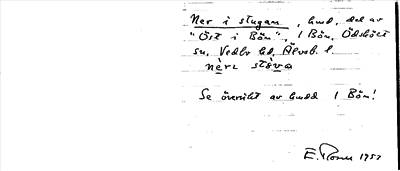 Ner i stugan, hmd, del av
"Öst i Bön", 1 Bön, Ödskölt
sn, Vedbo hd, Älvsb. l.
nèrɩ stòva
Se översikt av hmdd 1 Bön!
E. 1957